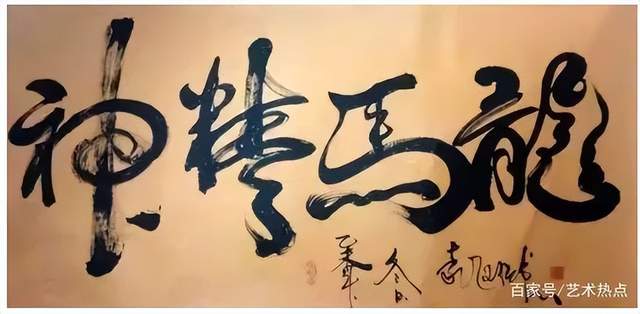 龍馬精神
百家号/艺术热点